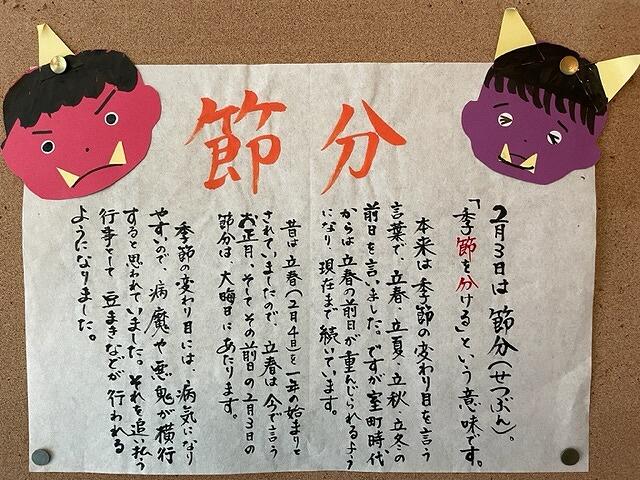 節分
2月3日は 節分(せつぶん)。
「季節を分ける」という意味です。
本来は 季節の変わり目を言う
言葉で、立春、立夏、立秋、立冬の
前日を言いました。ですが 室町時代
からは 立春の前日が 重んじられるよう
になり、現在まで 続いています。
昔は立春(2月4日)を一年の始まりと
されていましたので、立春は 今で言う
お正月、そしてその前日の2月3日の
節分は、大晦日に あたります。
季節の変わり目には、病気になり
やすいので、病魔や悪鬼が横行
すると思われていました。それを追い払う
行事として 豆まきなどが 行われる
ようになりました。